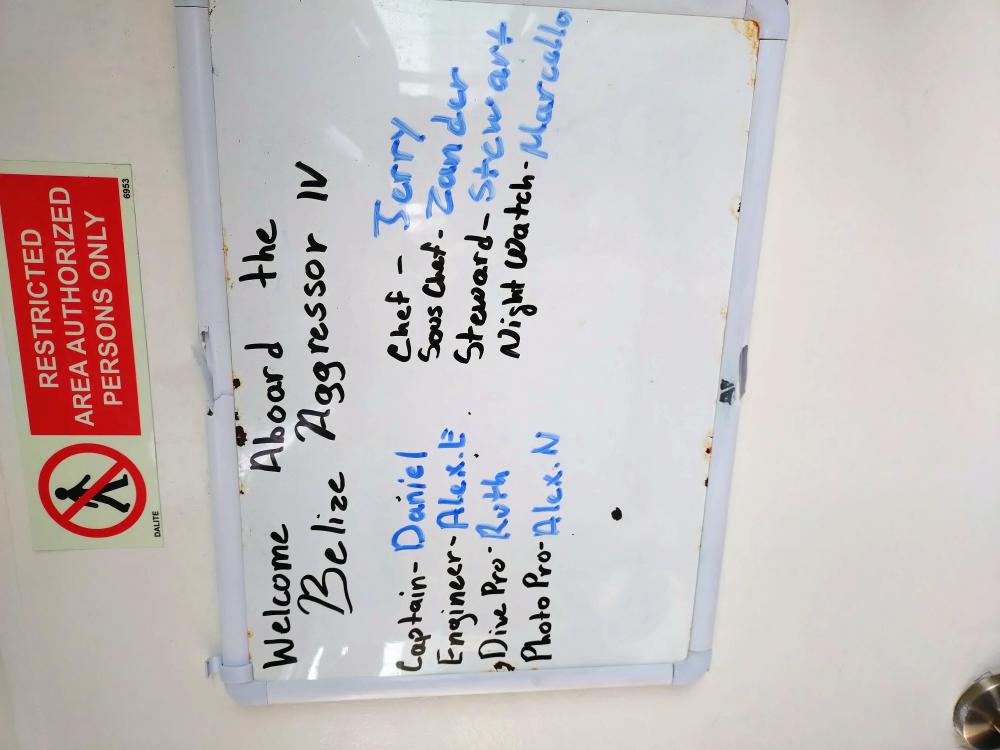 RESTRICTED
AREA AUTHORIZED
PERSONS ONLY
6953
DALITE
Welcome Aboard the
Belize Aggressor IV
Captain- Daniel
Engineer- Alex.E
Dive Pro- Ruth
Photo Pro- Alex.N
Chef - Jerry
Sous Chef - Zander
Steward - Stewart
Night Watch - Marcello